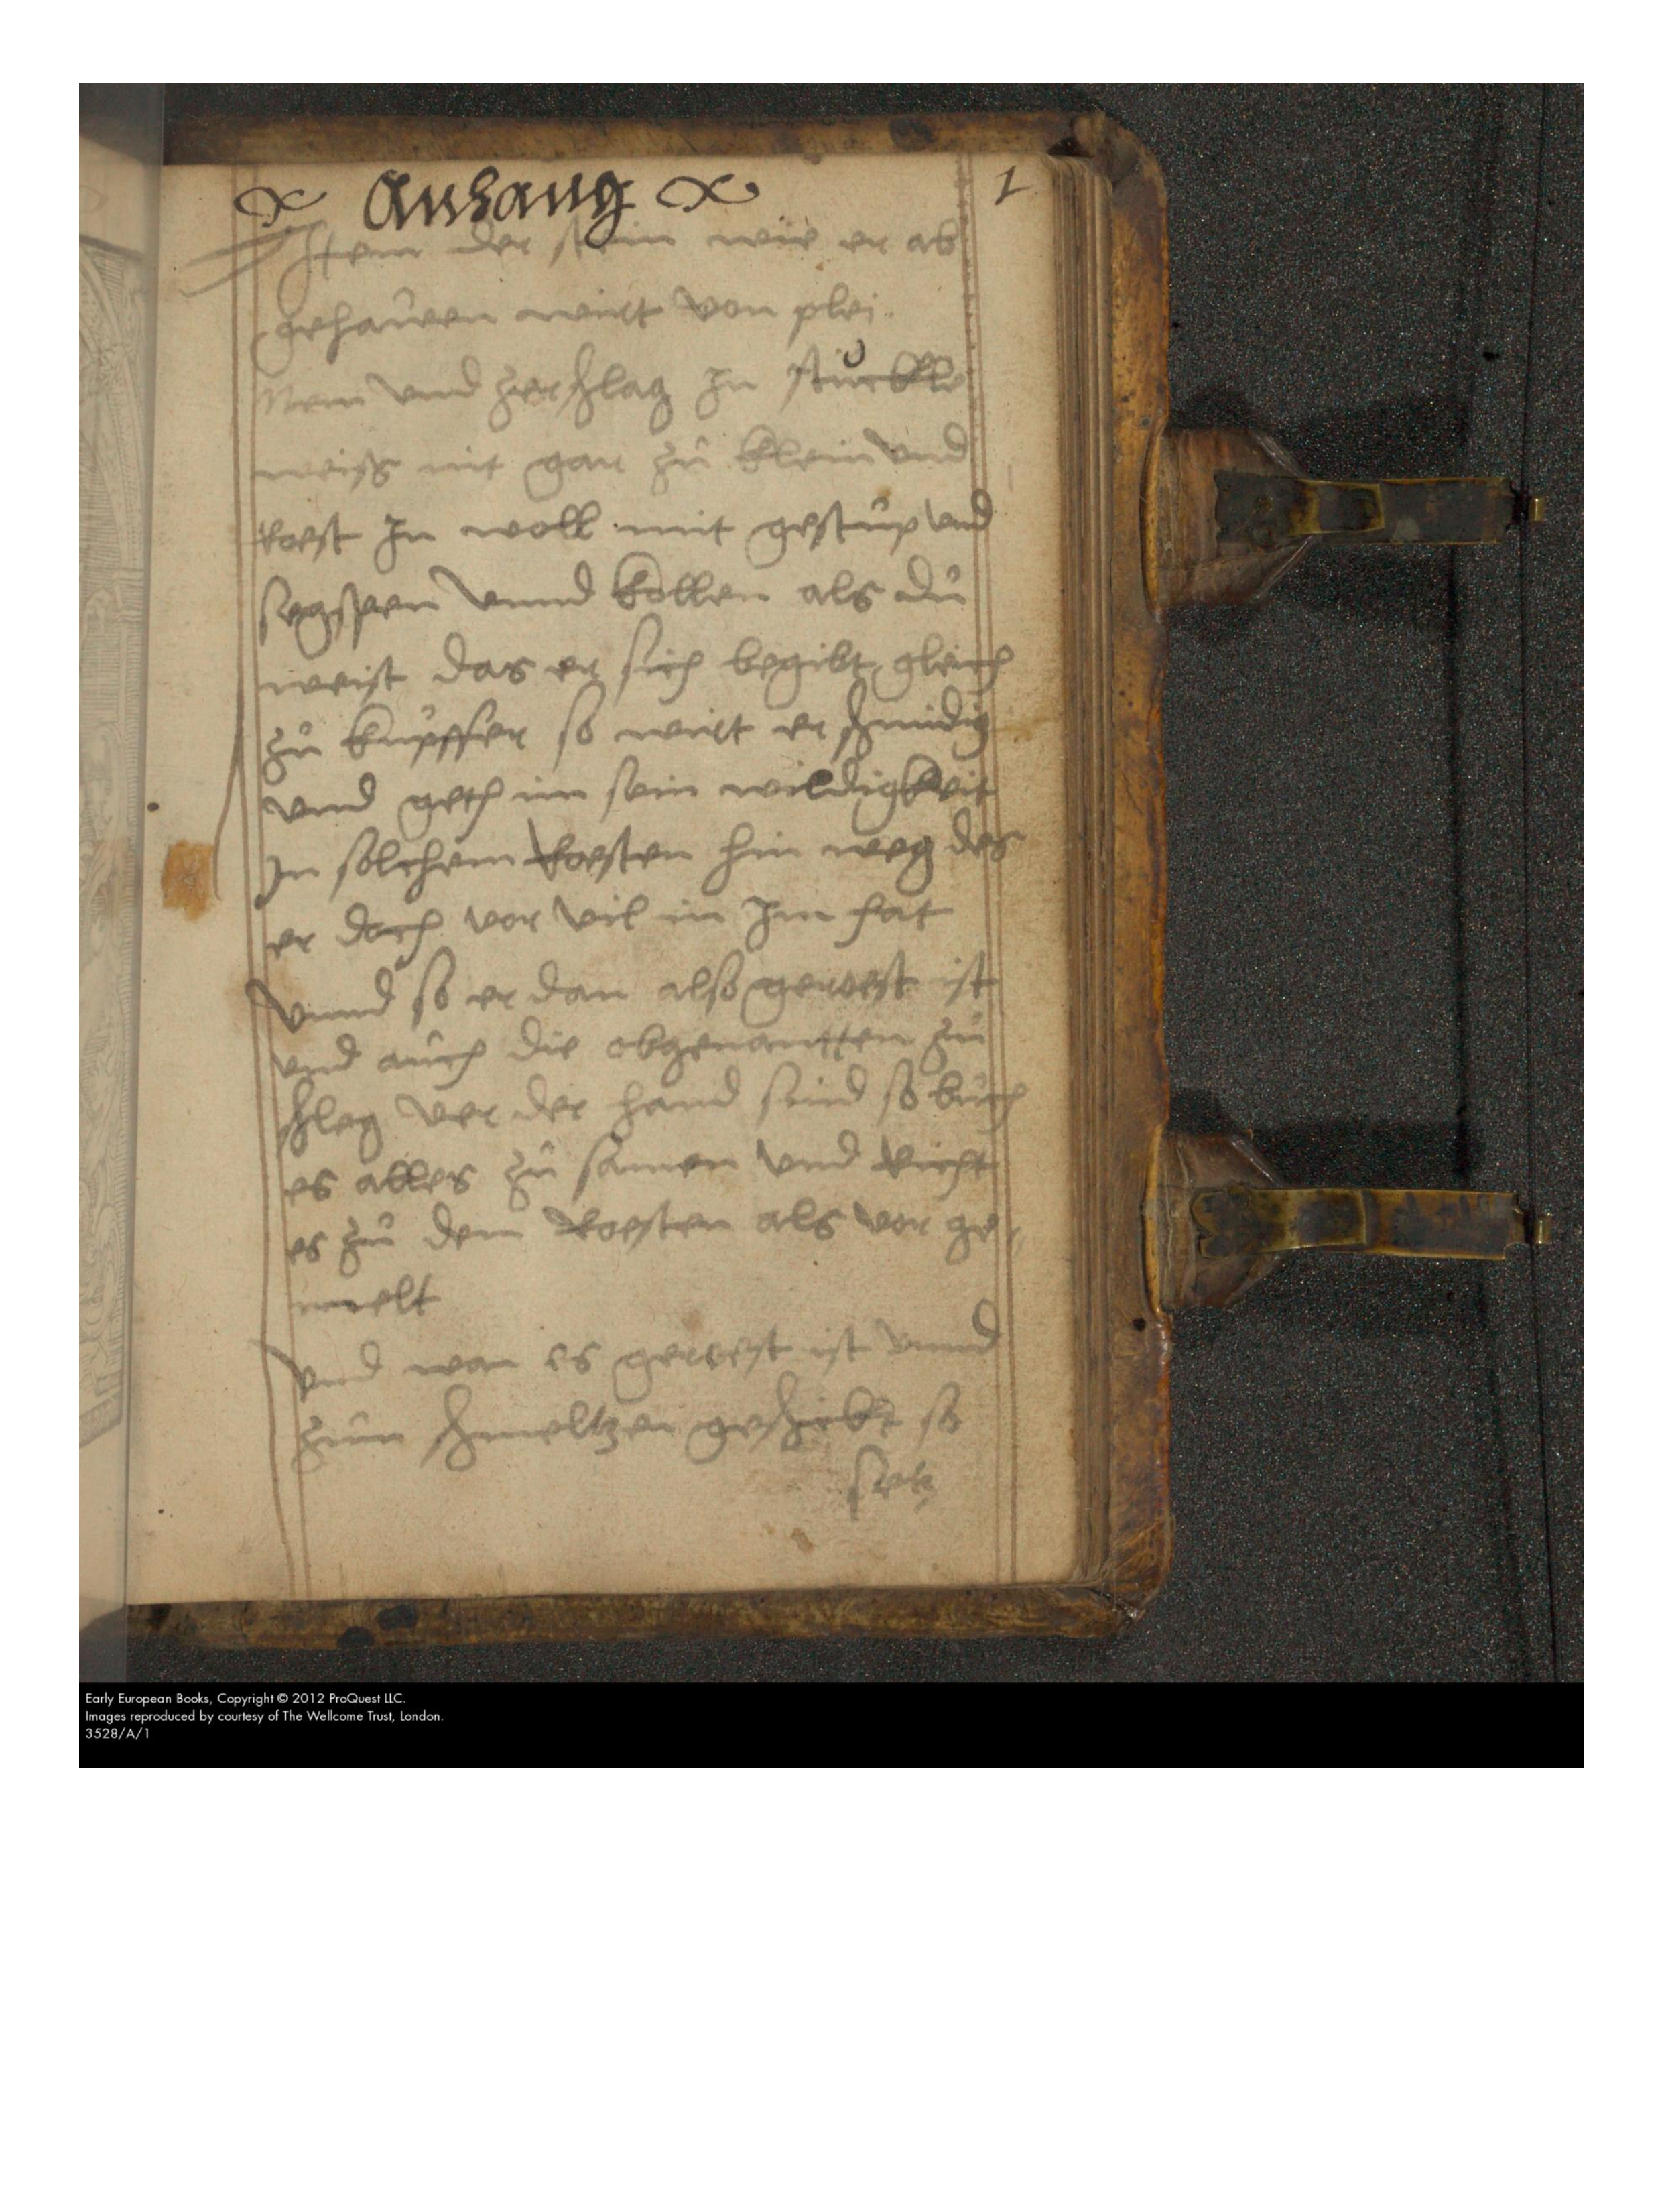 Anhang 1
Item der stein wie er ab
gehauen wirt von plei
Nem vnd zerschlag In stuckle
weiss nit gar zů klein vnd
Roest In woll mit gestup vnd
segspen vnnd kollen als dů
weist das er sich begibt gleich
zů kupffer so wirt er schmidig
vnd geth im sein wildigkeit
In solchem Roesten hin weg der
er doch vor vil in Im hat
Vnnd so er dan also geroest ist
vnd auch die obgenantten zů
schleg ver der hand sind so
es alles zů samen vnd Richt
es zů dem Roesten als vor ge
melt
Vnd wan es geroest ist vnnd
zům schmeltzen geschickt so
setz
Early European Books, Copyright © 2012 ProQuest LLC.
Images reproduced by courtesy of The Wellcome Trust, London.
3528/A/1